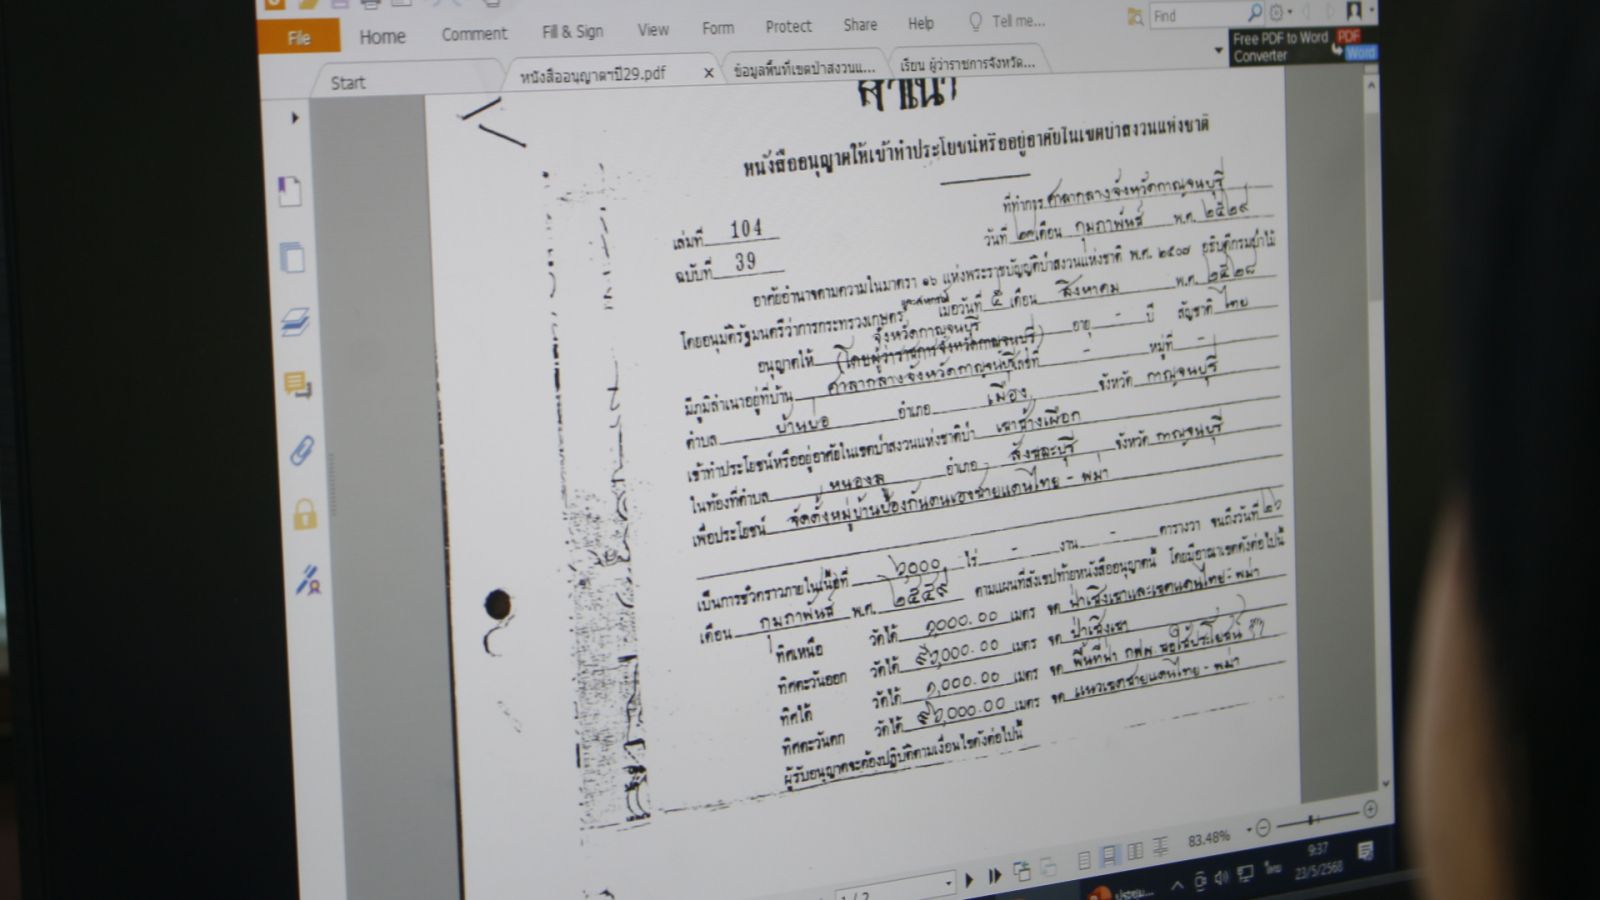 File Home Comment Fill & Sign View Form Protect Share Help Tell me... Find
Free PDF to Word PDF
Converter Word
Start หนังสืออนุญาตฯปี29.pdf × ข้อมูลพื้นที่เขตป่าสงวนแ... เรียน ผู้ว่าราชการจังหวัด...
สำเนา
หนังสืออนุญาตให้เข้าทำประโยชน์หรืออยู่อาศัยในเขตป่าสงวนแห่งชาติ
เล่มที่ 104
ฉบับที่ 39
ที่ทำการ ศาลากลางจังหวัดกาญจนบุรี
วันที่ ๒๗ เดือน กุมภาพันธ์ พ.ศ. ๒๕๒๙
อาศัยอำนาจตามความในมาตรา ๑๖ แห่งพระราชบัญญัติป่าสงวนแห่งชาติ พ.ศ. ๒๕๐๗ อธิบดีกรมป่าไม้
โดยอนุมัติรัฐมนตรีว่าการกระทรวงเกษตรและสหกรณ์ เมื่อวันที่ ๕ เดือน สิงหาคม พ.ศ. ๒๕๒๘
จังหวัดกาญจนบุรี
อนุญาตให้ (โดยผู้ว่าราชการจังหวัดกาญจนบุรี) อายุ - ปี สัญชาติ ไทย
มีภูมิลำเนาอยู่ที่บ้าน ศาลากลางจังหวัดกาญจนบุรี เลขที่ - หมู่ที่ -
ตำบล บ้านบ่อ อำเภอ เมือง จังหวัด กาญจนบุรี
เข้าทำประโยชน์หรืออยู่อาศัยในเขตป่าสงวนแห่งชาติป่า เขาช้างเผือก
ในท้องที่ตำบล หนองลู อำเภอ สังขละบุรี จังหวัด กาญจนบุรี
เพื่อประโยชน์ จัดตั้งหมู่บ้านป้องกันตนเองชายแดนไทย - พม่า
เป็นการชั่วคราวภายในเนื้อที่ ๖,๐๐๐ ไร่ - งาน - ตารางวา จนถึงวันที่ ๒๖
เดือน กุมภาพันธ์ พ.ศ. ๒๕๕๙ ตามแผนที่สังเขปท้ายหนังสืออนุญาตนี้ โดยมีอาณาเขตดังต่อไปนี้
ทิศเหนือ วัดได้ ๑,๐๐๐.๐๐ เมตร จด ป่าเชิงเขาและเขตแดนไทย - พม่า
ทิศตะวันออก วัดได้ ๙๖,๐๐๐.๐๐ เมตร จด ป่าเชิงเขา
ทิศใต้ วัดได้ ๑,๐๐๐.๐๐ เมตร จด พื้นที่ป่า กฟผ. ขอใช้ประโยชน์
ทิศตะวันตก วัดได้ ๙๖,๐๐๐.๐๐ เมตร จด แนวเขตชายแดนไทย - พม่า
ผู้รับอนุญาตจะต้องปฏิบัติตามเงื่อนไขดังต่อไปนี้
1 / 2 83.48%
ประชุม... ไทย 9:37
23/5/2568